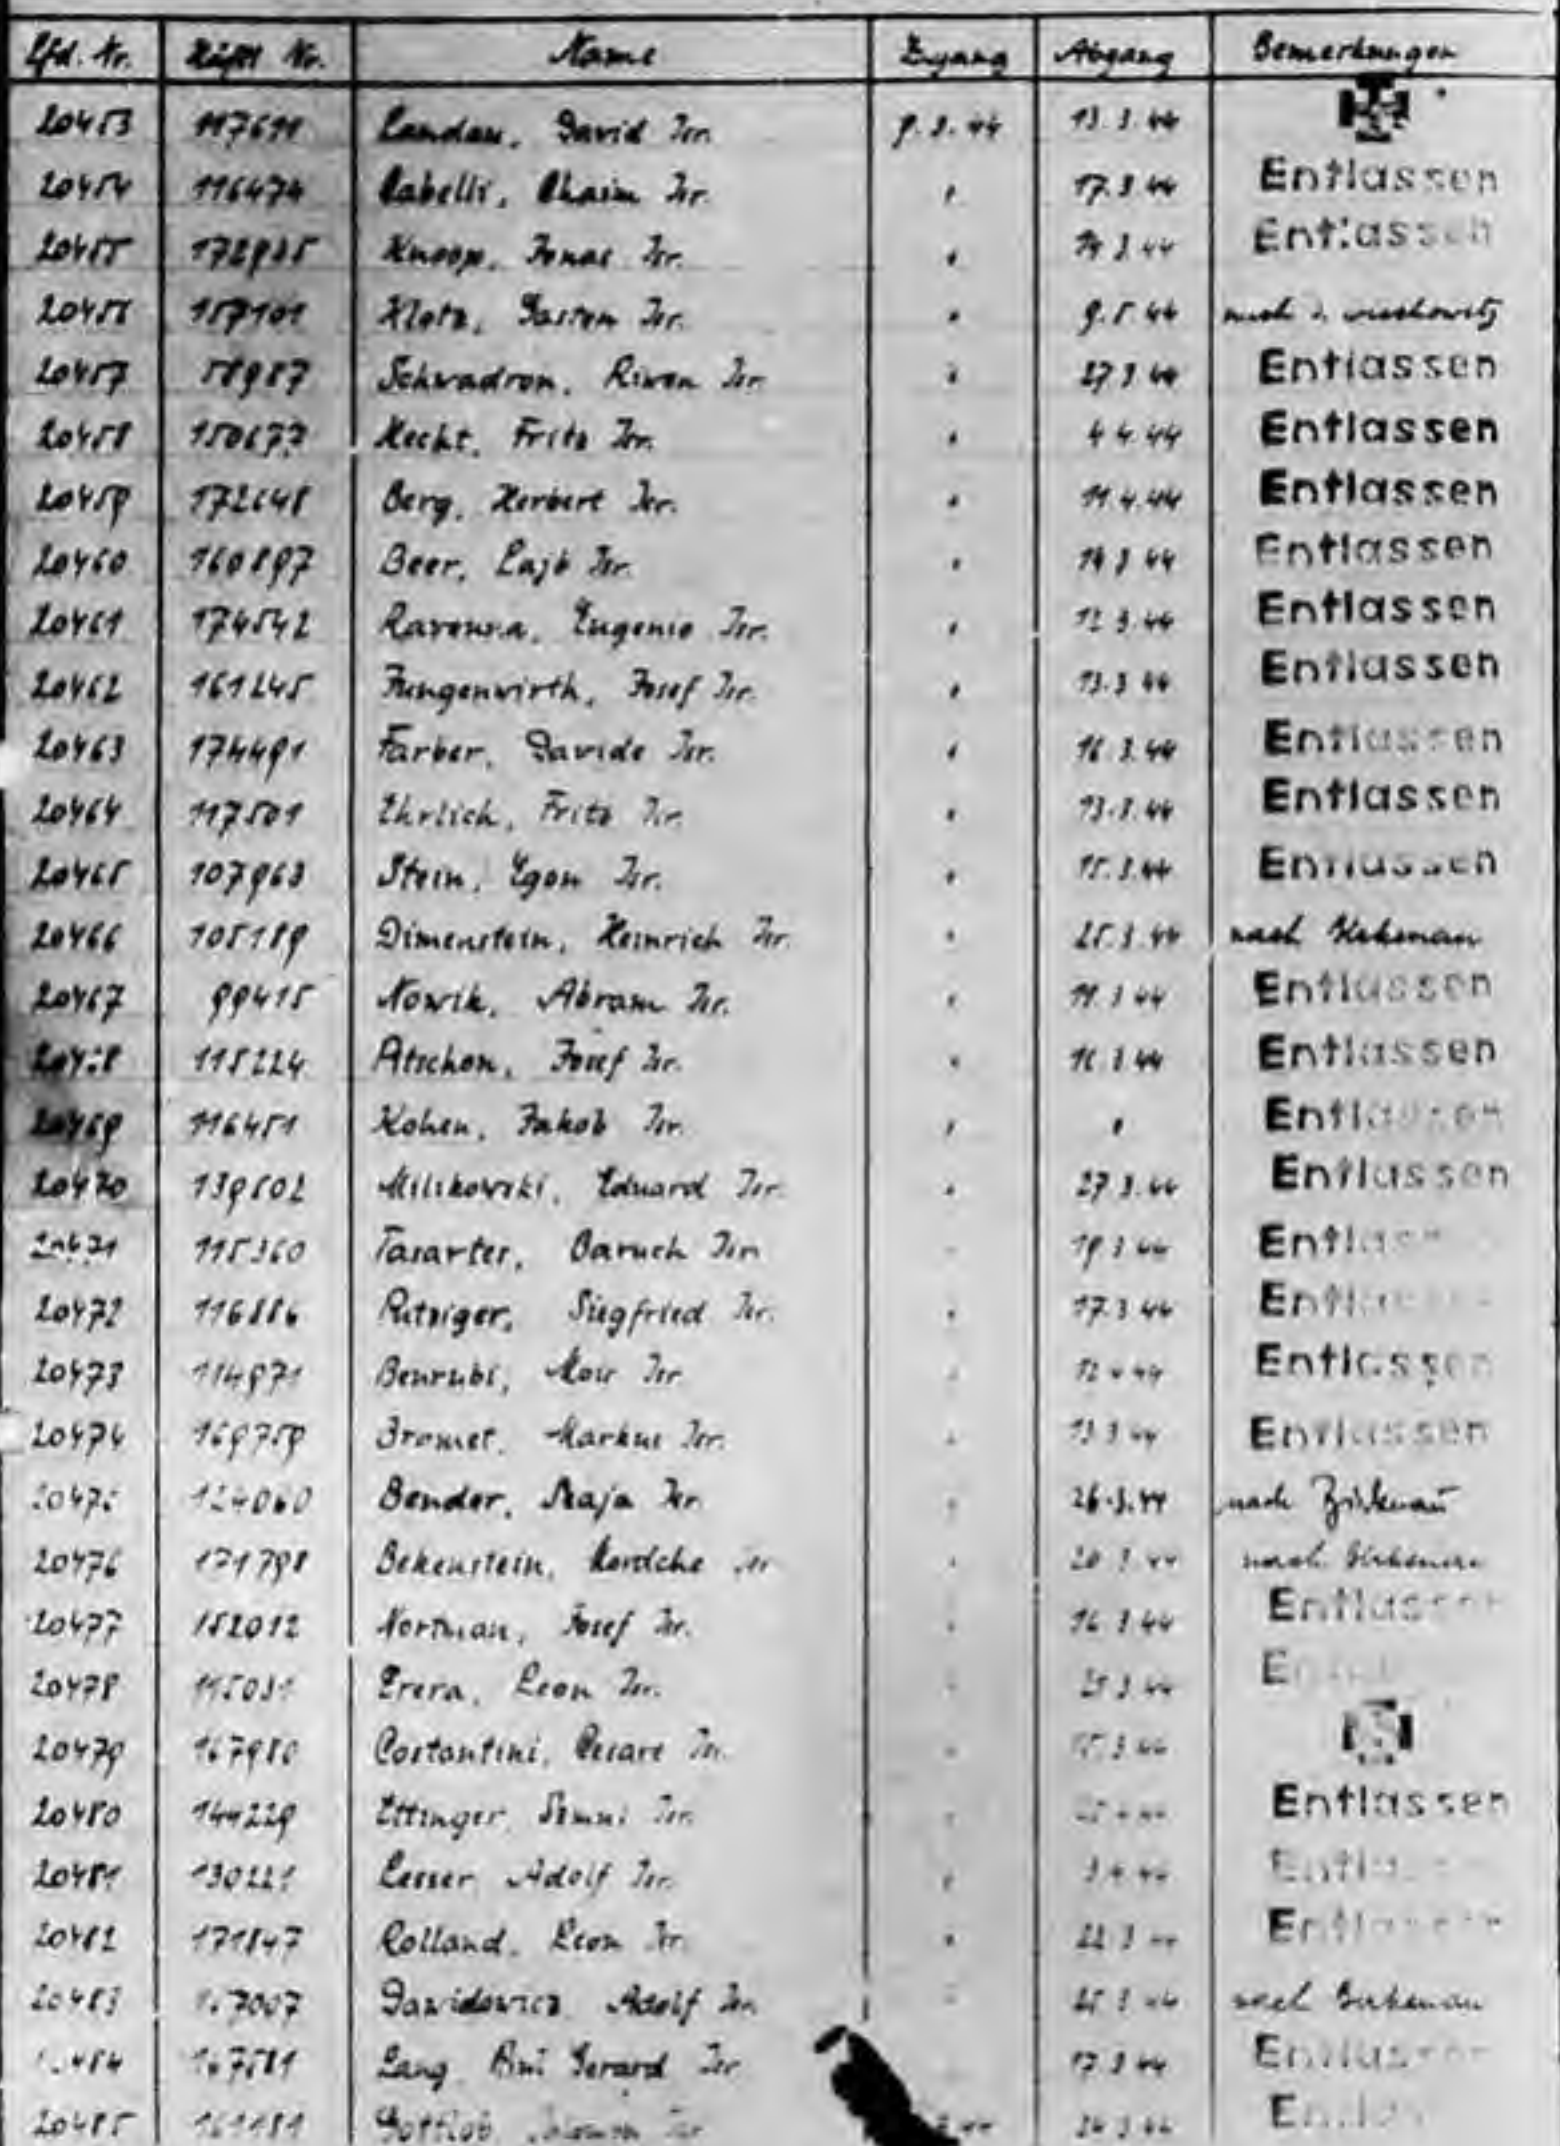 Lfd. Nr. Häftl. Nr. Name Zugang Abgang Bemerkungen
20453 117611 Landau, David Isr. 9.3.44 13.3.44
20454 116474 Cabelli, Chaim Isr. " 17.3.44 Entlassen
20455 172935 Knoop, Jonas Isr. " 14.3.44 Entlassen
20456 157101 Klotz, Gaston Isr. " 9.5.44 nach
20457 58987 Schwadron, Riwen Isr. " 27.3.44 Entlassen
20458 150677 Hecht, Fritz Isr. " 4.4.44 Entlassen
20459 172648 Berg, Herbert Isr. " 11.4.44 Entlassen
20460 160897 Beer, Lajb Isr. " 14.3.44 Entlassen
20461 174542 Ravenna, Eugenio Isr. " 12.3.44 Entlassen
20462 161245 Jungenwirth, Josef Isr. " 13.3.44 Entlassen
20463 174491 Farber, Davide Isr. " 16.3.44 Entlassen
20464 117501 Ehrlich, Fritz Isr. " 13.3.44 Entlassen
20465 107963 Stein, Egon Isr. " 15.3.44 Entlassen
20466 105189 Dimenstein, Heinrich Isr. " 25.3.44 nach Birkenau
20467 99415 Nowik, Abram Isr. " 11.3.44 Entlassen
20468 115224 Atschon, Josef Isr. " 16.3.44 Entlassen
20469 116451 Kohen, Jakob Isr. " " Entlassen
20470 139602 Milikowski, Eduard Isr. " 27.3.44 Entlassen
20471 115360 Tasartes, Baruch Isr. " 19.3.44 Entlassen
20472 116886 Rutziger, Siegfried Isr. " 17.3.44 Entlassen
20473 114971 Benrubi, Moir Isr. " 12.4.44 Entlassen
20474 169759 Bromet, Markus Isr. " 13.3.44 Entlassen
20475 124060 Bender, Maja Isr. " 26.3.44 nach Birkenau
20476 171798 Bekenstein, Mordche Isr. " 20.3.44 nach Birkenau
20477 152012 Nortman, Josef Isr. " 16.3.44 Entlassen
20478 115031 Errera, Leon Isr. " 25.3.44
20479 167980 Costantini, Cesare Isr. " 15.3.44
20480 144229 Ettinger, Isr. " Entlassen
20481 130221 Lesser, Adolf Isr. " 3.4.44 Entlassen
20482 171847 Rolland, Leon Isr. " 22.3.44 Entlassen
20483 Dawidowicz, Adolf Isr. " 25.3.44 nach Birkenau
167581 Lang, Gerard Isr. 17.3.44 Entlassen
20485 161181 Gottlob, Isr. 24.3.44